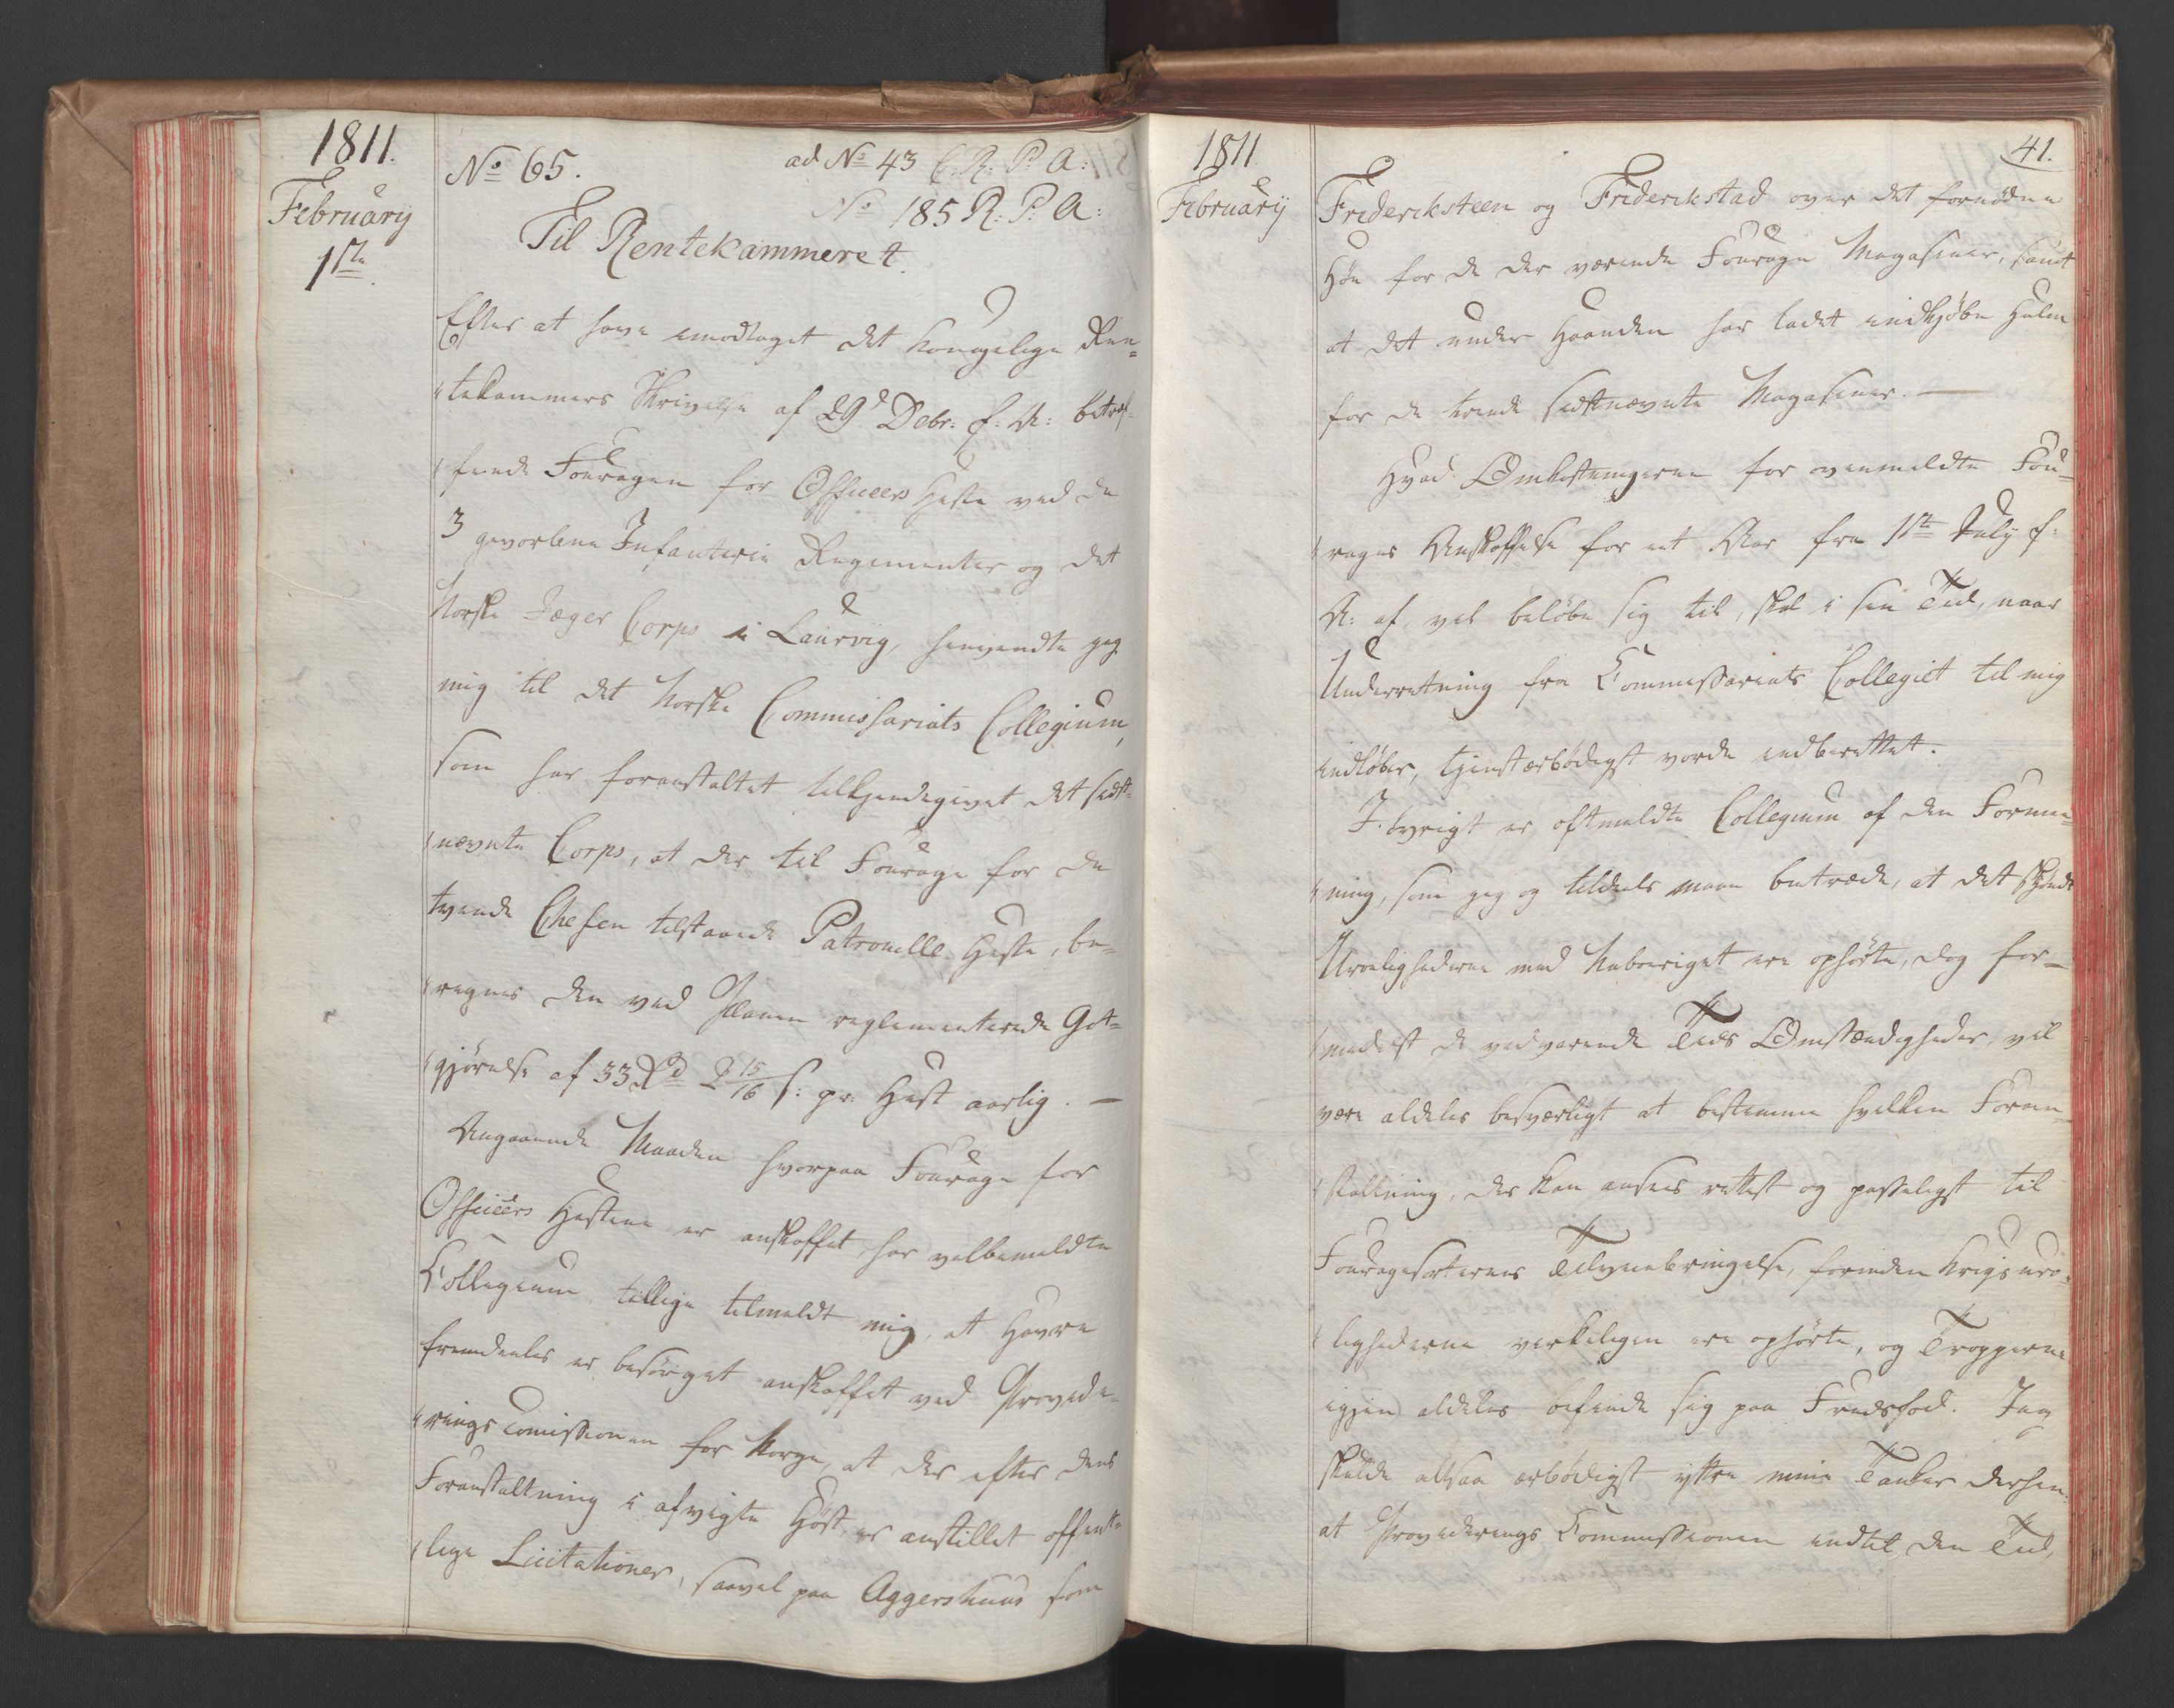 1811.
February
1ste
No 65.
ad No 43 C. R: P: A:
No 185 R: P: A:
Til Rentekammeret.
Efter at have imodtaget det Kongelige Ren=
"tekammers Skrivelse af 29d Debr: f: A: betref-
"fende Fouragen for Officeers Heste ved de
3 gevorbne Infanterie Regimenter og det
Norske Jæger Corps i Laurvig, henvendte jeg
mig til det Norske Commissariats Collegium,
som har foranstaltet tilkjendegivet det sidst-
"nævnte Corps, at der til Fourage for de
tvende Chefen tilstaaede Patrouille Heste, be=
"regnes den ved Planen reglementerede Got=
"gjørelse af 33 Rd 2 15/16 s: pr: Hest aarlig. —
Angaaende Maaden hvorpaa Fourage for
Officeers Hestene er anskaffet, har velbemeldte
Collegium tillige tilmeldt mig, at Havre
fremdeeles er besørget anskaffet ved Provide-
"rings Comissionen for Norge, at der efter dens
Foranstaltning i afvigte Høst er anstillet offent-
"lige Licitationer, saavel paa Aggershuus som
1811
February
41.
Friderichsteen og Friderichstad over det fornødne
Høe for de der værende Fourage Magasiner, samt
at det under Haanden har ladet indkjøbe Halm
for de tvende sidstnævnte Magasiner. —
Hvad Omkostningerne for ovenmeldte Fou=
"rages Anskaffelse for eet Aar fra 1ste July f:
A: af, vil beløbe sig til, skal i sin Tid, naar
Underretning fra Commissariats Collegiet til mig
indløber, tjenstærbødigst vorde indberettet.
I øvrigt er oftmeldte Collegium af den Forme=
"ning, som jeg og tildeels maae betræde, at det skjøndt
Uroelighederne med Naboeriget ere ophørte, dog for=
"medelst de vedvarende Tids Omstændigheder, vil
være aldeles besværligt at bestemme hvilken Foran=
"staltning, der kan ansees rettest og passeligst til
Fouragesorternes Tilvejebringelse, forinden Krigs uro=
"lighederne virkeligen ere ophørte, og Tropperne
igjen aldeles befinde sig paa Fredsfod. Jeg
skulde altsaa ærbødigst yttre mine Tanker derhen:
at Providerings Commissionen indtil den Tid,